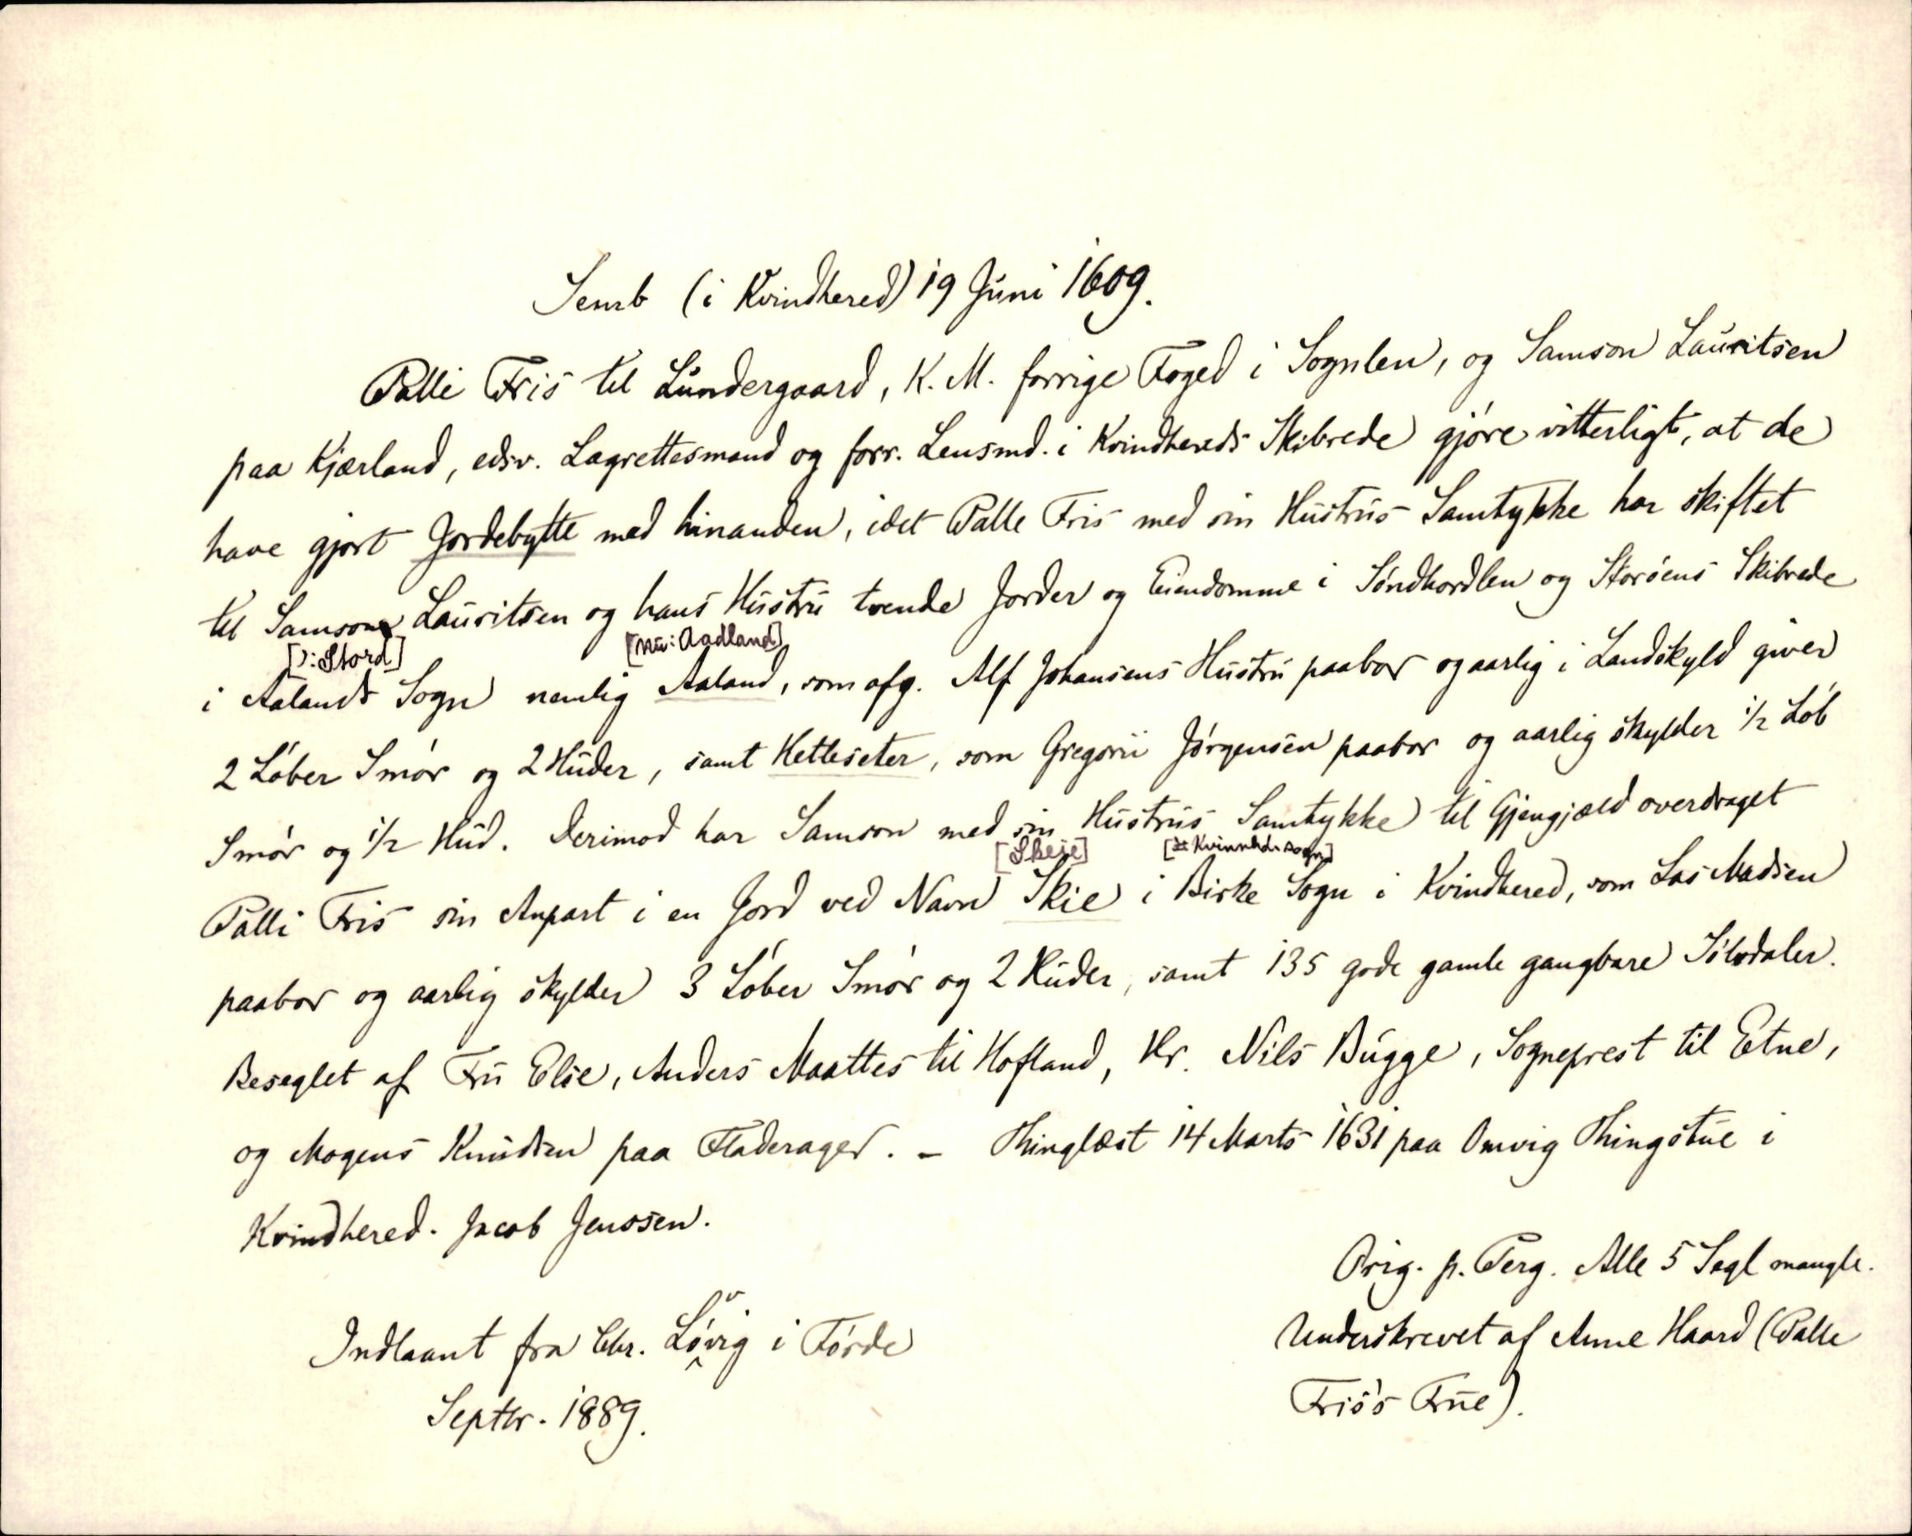 Semb (i Kvindhered) 19 Juni 1609.
Palli Fris til Lundergaard, K. M. forrige Foged i Sognlen, og Samson Lauritsen
paa Kjærland, edsv. Lagrettesmand og forr. Lensmd. i Kvindhereds Skibrede gjöre vitterligt, at de
have gjort Jordebytte med hinanden, idet Palle Fris med sin Hustrus Samtykke har skiftet
til Samson Lauritsen og hans Hustru tvende Jorder og Eiendomme i Söndhordlen og Storöens Skibrede
[ɔ: Stord] [nu: Aadland]
i Aalands Sogn nemlig Aaland, som afg. Alf Johansens Hustru paabor og aarlig i Landskyld giver
2 Löber Smör og 2 Huder, samt Hetleseter, som Gregorii Jörgensen paabor og aarlig skylder 1/2 Löb
Smör og 1/2 Hud. Derimod har Samson med sin Hustrus Samtykke til Gjengjæld overdraget
[Skeie] [Kvinnhd. sogn]
Palli Fris sin Anpart i en Jord ved Navn Skie i Birke Sogn i Kvindhered, som Las Madsen
paabor og aarlig skylder 3 Löber Smör og 2 Huder, samt 135 gode gamle gangbare Sölvdaler.
Beseglet af Fru Else, Anders Maattes til Hofland, Hr. Nils Bugge, Sogneprest til Etne,
og Mogens Knudsen paa Fladerager. – Thinglæst 14 Marts 1631 paa Omvig Thingstue i
Kvindhered. Jacob Jenssen.
Orig. p. Perg. Alle 5 Segl mangle.
Underskrevet af Anne Haard (Palle
Fris's Frue).
Indlaant fra Chr. Lövvig i Förde
Septbr. 1889.